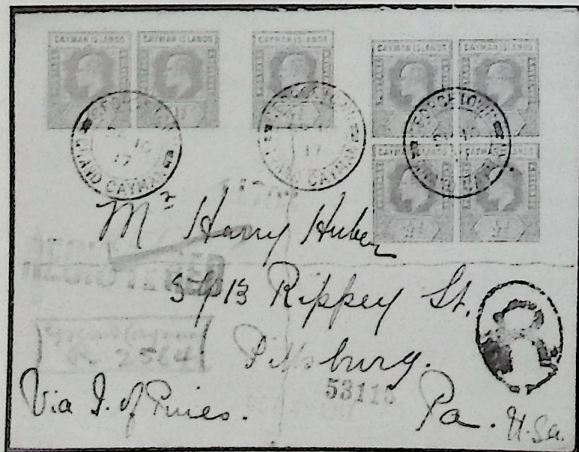 CAYMAN ISLANDS CAYMAN ISLANDS CAYMAN ISLANDS CAYMAN ISLANDS CAYMAN ISLANDS
GEORGETOWN
GRAND CAYMAN
17
GEORGETOWN
GRAND CAYMAN
17
GEORGETOWN
GRAND CAYMAN
17
Mr Harry Huber
5713 Rippey St.
Pittsburg.
Pa. U.S.a.
Via I. of Pines.
R